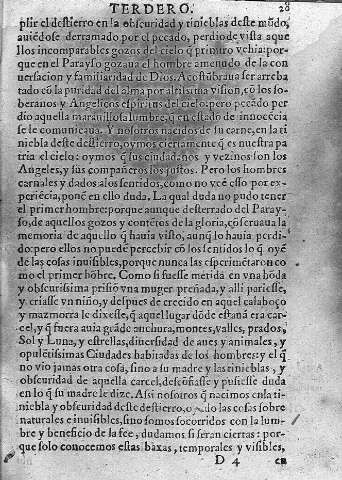 TERDERO. 28
plir el destierro en la obscuridad y tinieblas deste mũdo,
auiẽdose derramado por el pecado, perdio de vista aque
llos incomparables gozos del cielo q̃ primero vehia: por
que en el Parayso gozaua el hombre amenudo de la con
uersacion y familiaridad de Dios. Acostũbraua ser arreba
tado cõ la puridad del alma por altissima visiõ, cõ los so-
beranos y Angelicos espiritus del cielo: pero pecãdo per
dio aquella marauillosa lumbre, q̃ en estado de innocẽcia
se le comunicaua. Y nosotros nacidos de su carne, en la ti
niebla deste destierro, oymos ciertamente q̃ es nuestra pa
tria el cielo: oymos q̃ sus ciudadanos y vezinos son los
Angeles, y sus compañeros los justos. Pero los hombres
carnales y dados a los sentidos, como no vẽ esso por ex-
periẽcia, ponẽ en ello duda. La qual duda no pudo tener
el primer hombre: porque aunque desterrado del Paray-
so, de aquellos gozos y contẽtos de la gloria, cõseruaua la
memoria de aquello q̃ hauia visto, aunq̃ lo hauia perdi-
do: pero ellos no puedẽ percebir cõ los sentidos lo q̃ oyẽ
de las cosas inuisibles, porque nunca las esperimẽtaron co
mo el primer hõbre. Como si fuesse metida en vna hõda
y obscurissima prisiõ vna muger preñada, y alli pariesse,
y criasse vn niño, y despues de crecido en aquel calaboço
y mazmorra le dixesse, q̃ aquel lugar dõde estaua era car-
cel, y q̃ fuera auia grãde anchura, montes, valles, prados,
Sol y Luna, y estrellas, diuersidad de aues y animales, y
opulẽtissimas Ciudades habitadas de los hombres: y el q̃
no vio jamas otra cosa, sino a su madre y las tinieblas, y
obscuridad de aquella carcel, descõfiasse y pusiesse duda
en lo q̃ su madre le dize. Assi nosotros q̃ nacimos en la ti-
niebla y obscuridad deste destierro, oyẽdo las cosas sobre
naturales e inuisibles, sino somos socorridos con la lum-
bre y beneficio de la fee, dudamos si seran ciertas: por-
que solo conocemos estas baxas, temporales y visibles,
D 4 en